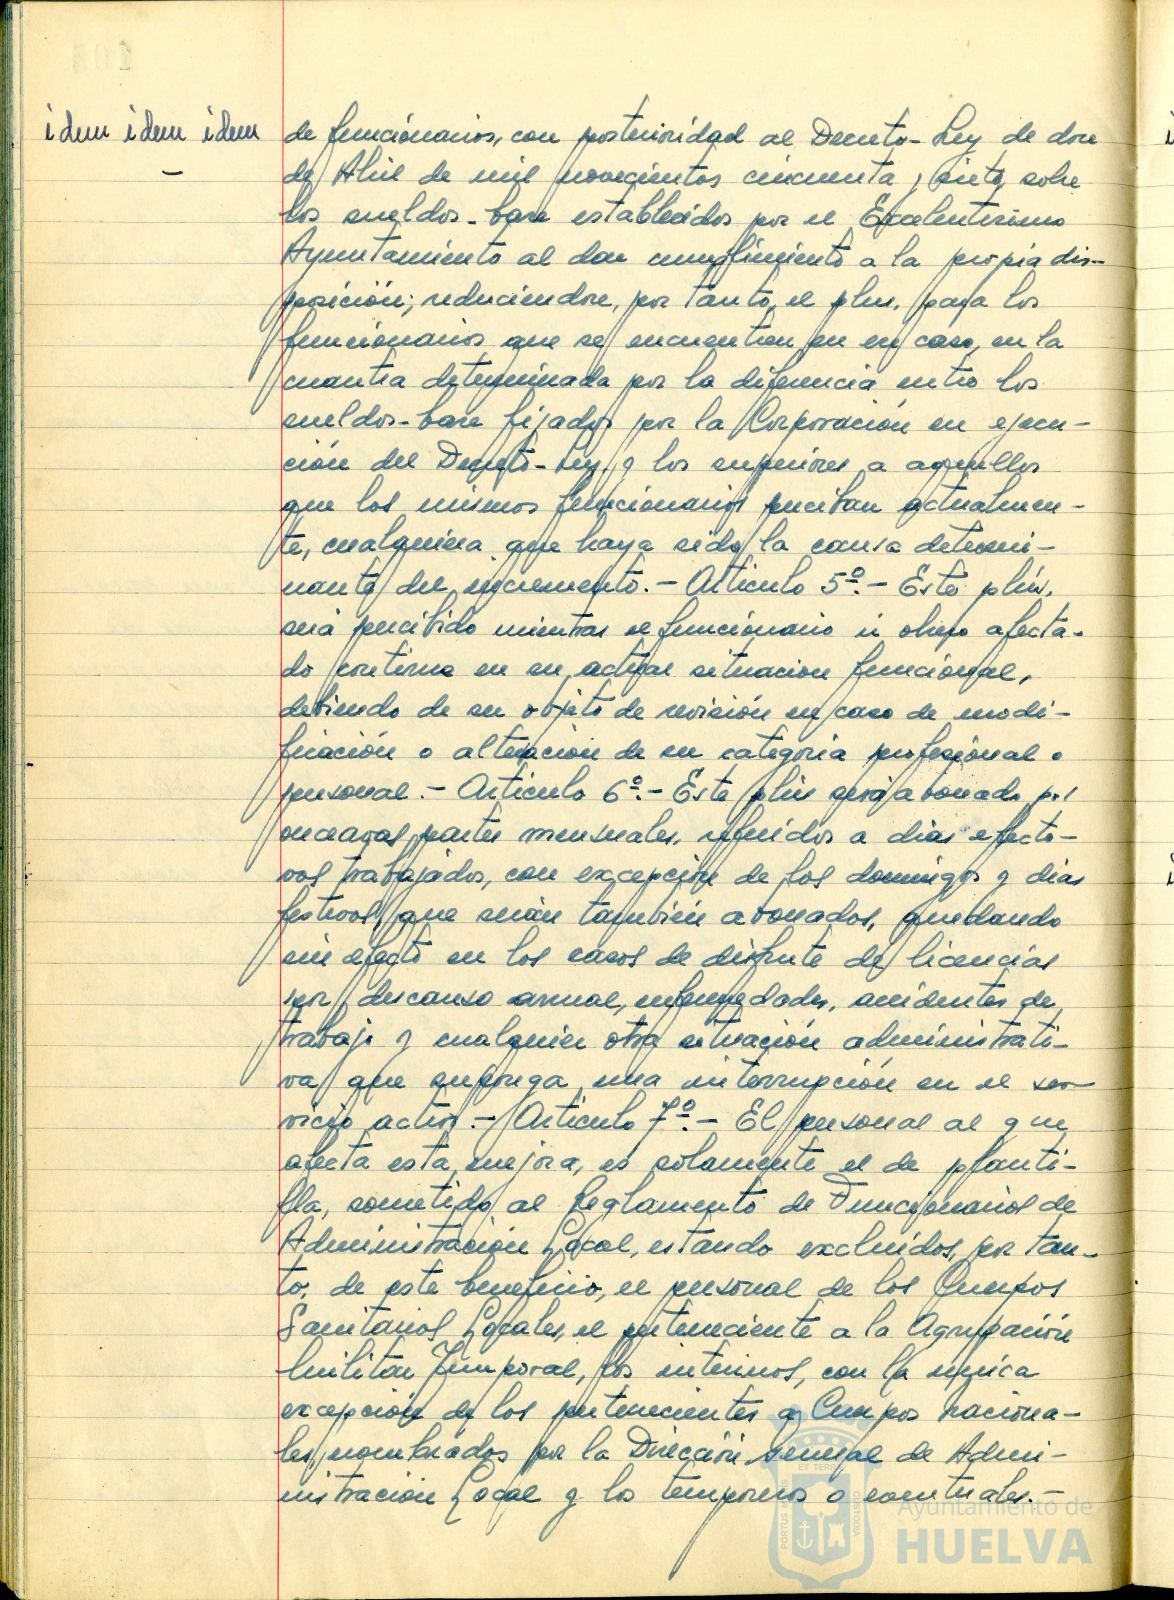 idem idem idem
de funcionarios, con posterioridad al Decreto-Ley de doce
de Abril de mil novecientos cincuenta y siete, sobre
los sueldos-base establecidos por el Excelentísimo
Ayuntamiento al dar cumplimiento a la propia dis-
posición; reduciendose, por tanto, el plus, para los
funcionarios que se encuentren en su caso, en la
cuantia determinada por la diferencia entre los
sueldos-base fijados por la Corporación en ejecu-
ción del Decreto-Ley, y los superiores a aquellos
que los mismos funcionarios perciban actualmen-
te, cualquiera que haya sido la causa determi-
nante del incremento.- Artículo 5º.- Este plús,
será percibido mientras el funcionario ú obrero afecta-
do continue en su actual situación funcional,
debiendo de ser objeto de revisión en caso de modi-
ficación o alteración de su categoria profesional o
personal.- Artículo 6º.- Este plus será abonado por
onceavas partes mensuales, referidos a dias efecti-
vos trabajados, con excepción de los domingos y dias
festivos, que serán también abonados, quedando
sin efecto en los casos de disfrute de licencias
por descanso anual, enfermedades, accidentes de
trabajo y cualquier otra situación administrati-
va que suponga una interrupción en el ser-
vicio activo.- Artículo 7º.- El personal al que
afecta esta mejora, es solamente el de planti-
lla, sometido al Reglamento de Funcionarios de
Administración Local, estando excluidos, por tan-
to, de este beneficio, el personal de los Cuerpos
Sanitarios Locales, el perteneciente a la Agrupación
Militar Temporal, los interinos, con la única
excepción de los pertenecientes a Cuerpos naciona-
les, nombrados por la Dirección General de Admi-
nistración Local y los temporeros o eventuales.-
Ayuntamiento de
HUELVA